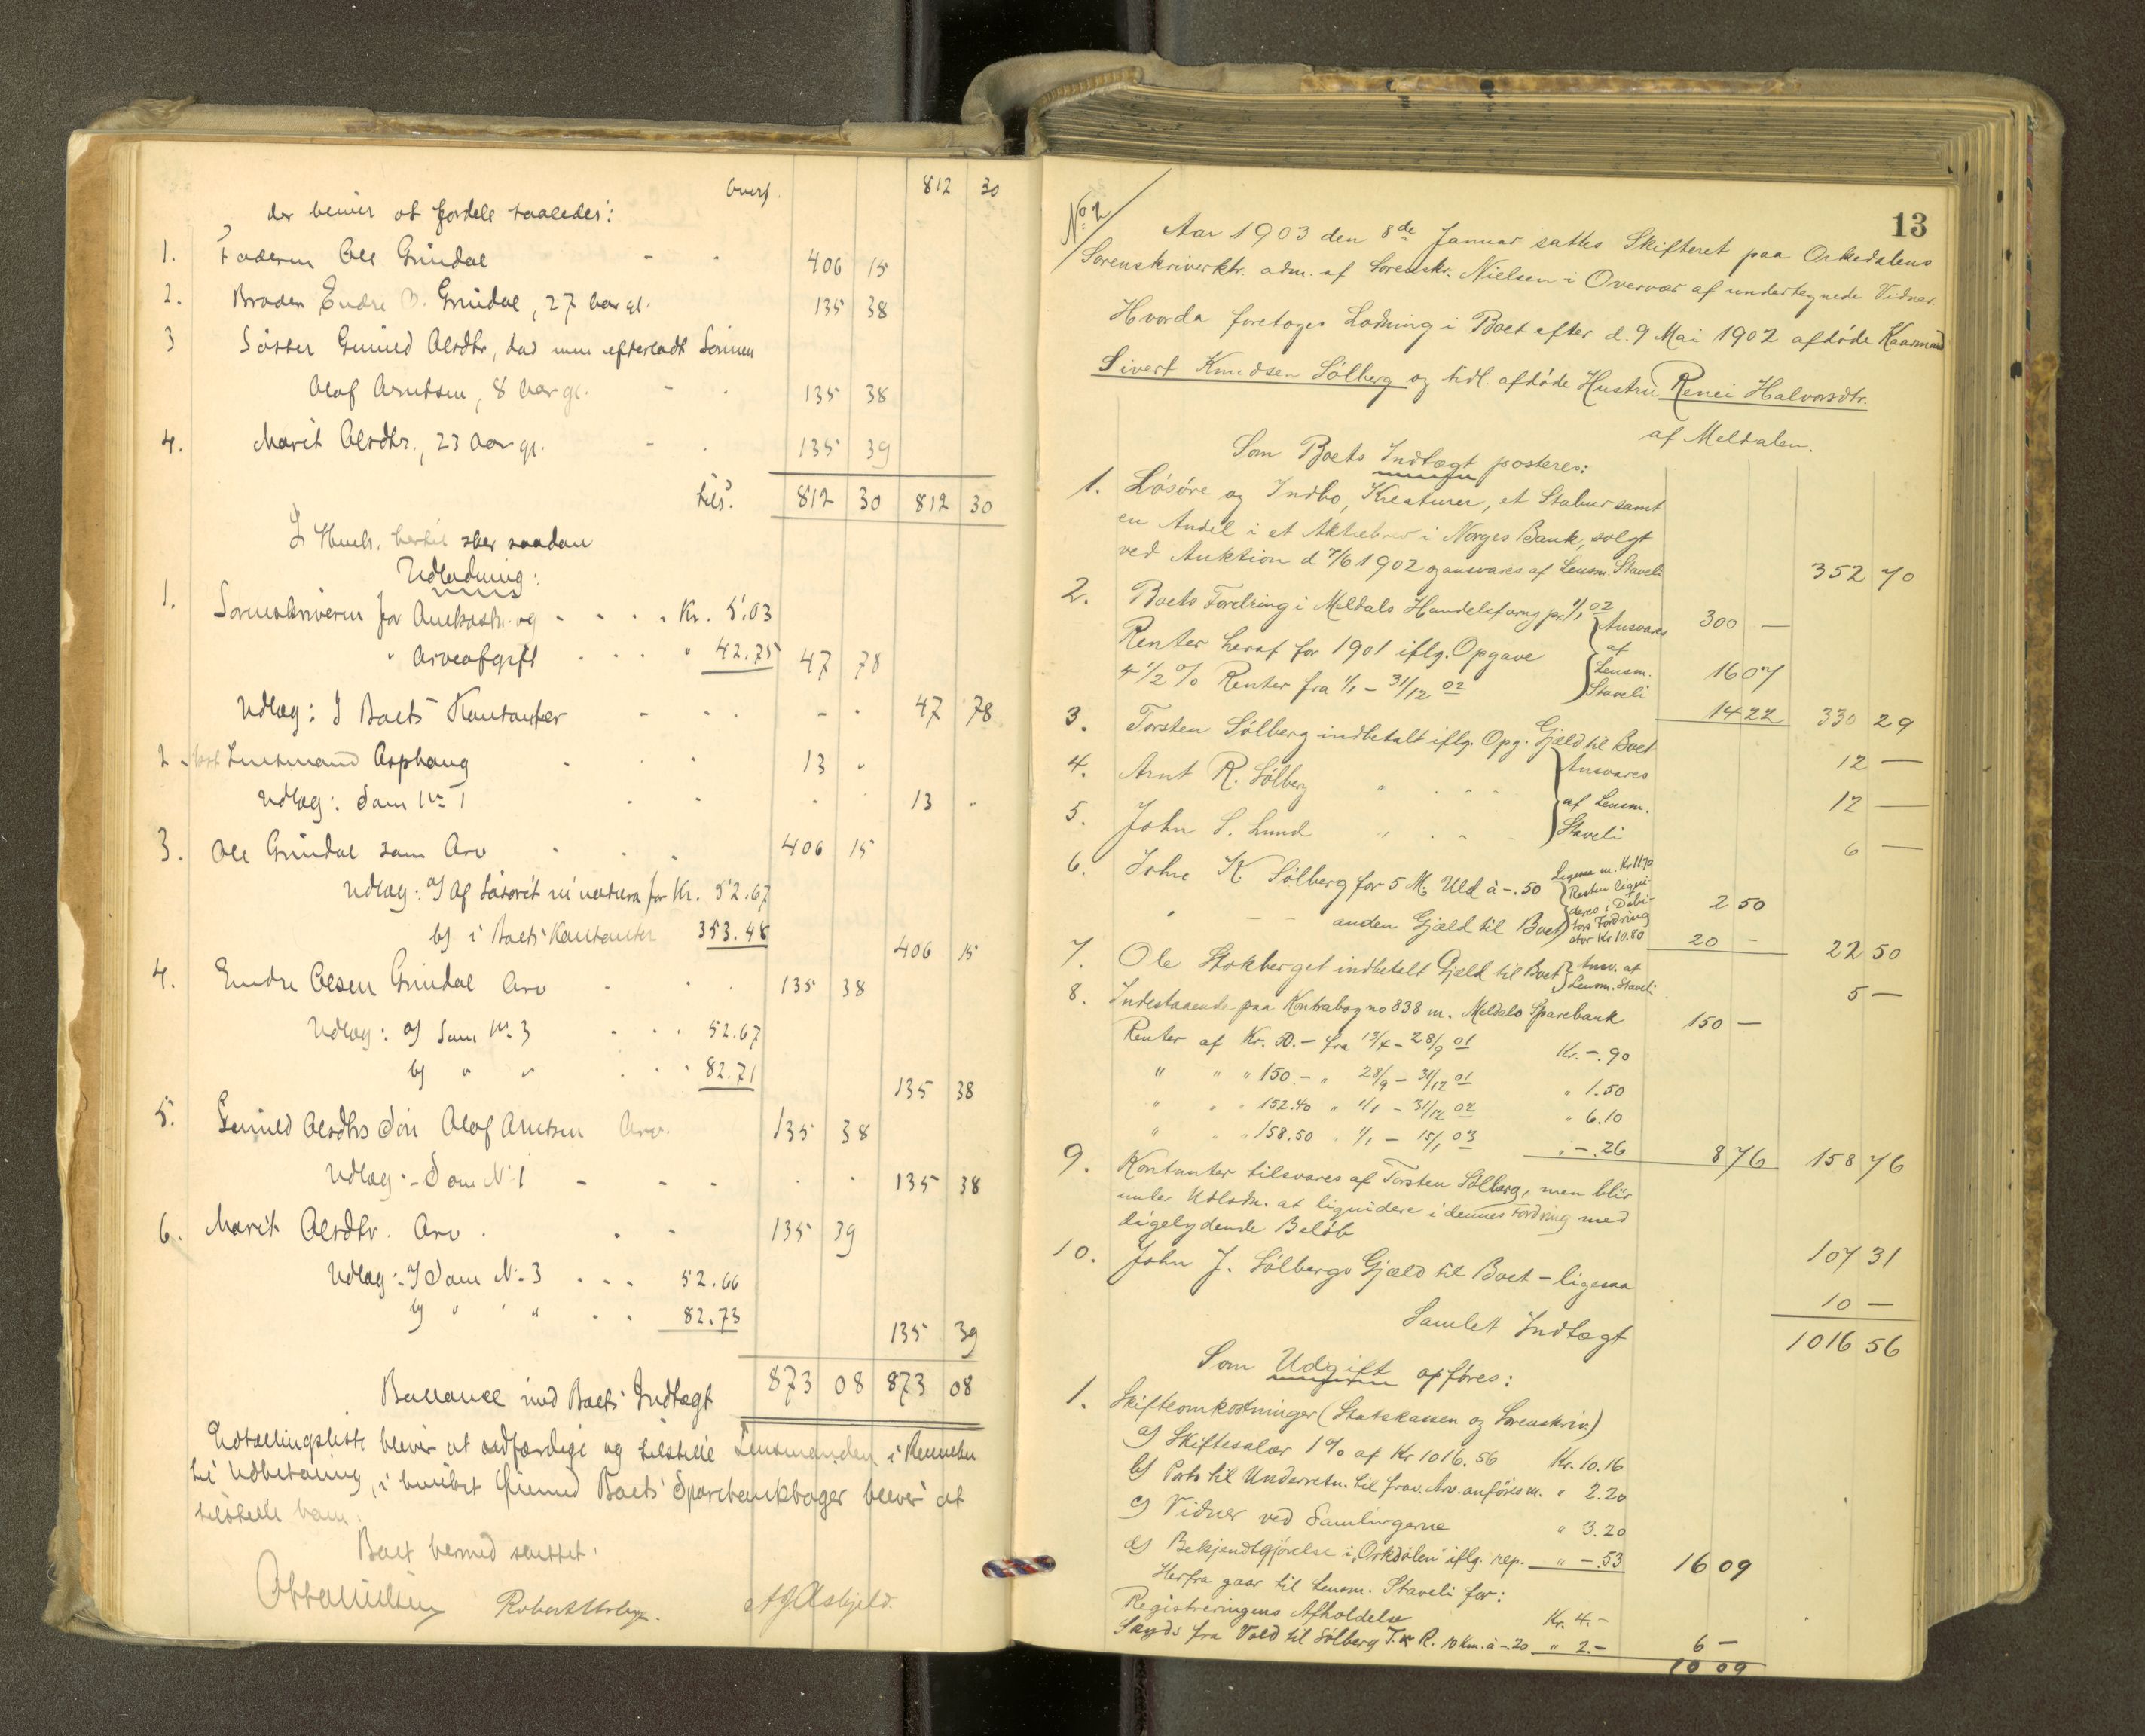 Overf. 812 30
der bliver at fordele saaledes:
1. Faderen Ole Grindal - - 406 15
2. Broder Endre O. Grindal, 27 Aar gl. 135 38
3 Søster Gunild Olsdtr, død men efterladt Sønnen
Olof Arntsen, 8 Aar gl. - - 135 38
4. Marit Olsdtr., 23 Aar gl. - - 135 39
tils. 812 30 812 30
I Henh. hertil sker saadan
Udlodning:
1. Sorenskriveren for Omkostn. og - - - - Kr. 5.03
" Arveafgift - - - " 42.75 47 78
Udlæg: I Boets Kontanter - - - - - 47 78
2. Lensmand Asphaug - - - 13 "
Udlæg: Som No 1 - - - - 13 "
3. Ole Grindal som Arv - - - 406 15
Udlæg: a) Af Løsøret in natura for Kr. 52.67
b) i Boets Kontanter 353.48
406 15
4. Endre Olsen Grindal Arv - - - 135 38
Udlæg: a) Som No 3 - - - 52.67
b) " " - - - 82.71
135 38
5. Gunild Olsdtrs Søn Olof Arntsen Arv. 135 38
Udlæg - Som N. 1 - - - - - 135 38
6. Marit Olsdtr. Arv. - - 135 39
Udlæg: a) Som N. 3 - - - 52.66
b) " " " - - 82.73
135 39
Ballance med Boets Indtægt 873 08 873 08
Udtællingsliste bliver at udfærdige og tilstille Lensmanden i Rennebu
til Udbetaling, i hvilket Øiemed Boets Sparebankbøger bliver at
tilstille ham.
Boet hermed sluttet.
13
No 2
Aar 1903 den 8de Januar sattes Skifteret paa Orkedalens
Sorenskriverktr. adm. af Sorenskr. Nielsen i Overvær af undertegnede Vidner.
Hvorda foretoges Lodning i Boet efter d. 9 Mai 1902 afdøde Kaarmand
Sivert Knudsen Sølberg og tidl. afdøde Hustru Renei Halvorsdtr.
af Meldalen.
Som Boets Indtægt posteres:
1. Løsøre og Indbo, Kreaturer, et Stabur samt
en Andel i et Aktiebrev i Norges Bank, solgt
ved Auktion d 7/6 1902 og ansvares af Lensm. Staveli 352 70
2. Boets Fordring i Meldals Handelsforng pr. 1/1 02 } Ansvares 300 -
Renter heraf for 1901 iflg. Opgave } af Lensm. 16 07
4 1/2 % Renter fra 1/1 - 31/12 02 } Staveli 14 22 330 29
3. Torsten Sølberg indbetalt iflg. Opg. Gjæld til Boet } Ansvares 12 -
4. Arnt R. Sølberg " - - - } af Lensm. 12 -
5. John S. Lund " - - - } Staveli 6 -
6. Johne K. Sølberg for 5 M. Uld à -.50 } Ligene m. Kr 11.70 2 50
" - - anden Gjæld til Boet } Resten ligvi-deres i Debi-tors Fordring stor Kr 10.80 20 - 22 50
7. Ole Stokberget indbetalt Gjæld til Boet } Ansv. af Lensm. Staveli 5 -
8. Indestaaende paa Kontrabog no 838 m. Meldals Sparebank 150 -
Renter af Kr. 50.- fra 13/4 - 28/9 01 Kr. -.90
" " " 150.- " 28/9 - 31/12 01 " 1.50
" " " 152.40 " 1/1 - 31/12 02 " 6.10
" " " 158.50 " 1/1 - 15/1 03 " -.26 8 76 158 76
9. Kontanter tilsvares af Torsten Sølberg, men blir
under Udlodn. at liquidere i dennes Fordring med
ligelydende Beløb 107 31
10. John J. Sølbergs Gjæld til Boet - ligesaa 10 -
Samlet Indtægt 1016 56
Som Udgift opføres:
1. Skifteomkostninger (Statskassen og Sorenskriv.)
a) Skiftesalær 1 % af Kr 1016.56 Kr. 10.16
b) Porto til Underretn. til frav. Arv. anføres m. " 2.20
c) Vidner ved Samlingerne " 3.20
d) Bekjendtgjørelse i "Orkdølen" iflg. rep. - " -.53 16 09
Herfra gaar til Lensm. Staveli for:
Registreringens Afholdelse Kr. 4.-
Skyds fra Vold til Sølberg T. & R. 10 Km. à -.20 " 2.- 6 -
10 09